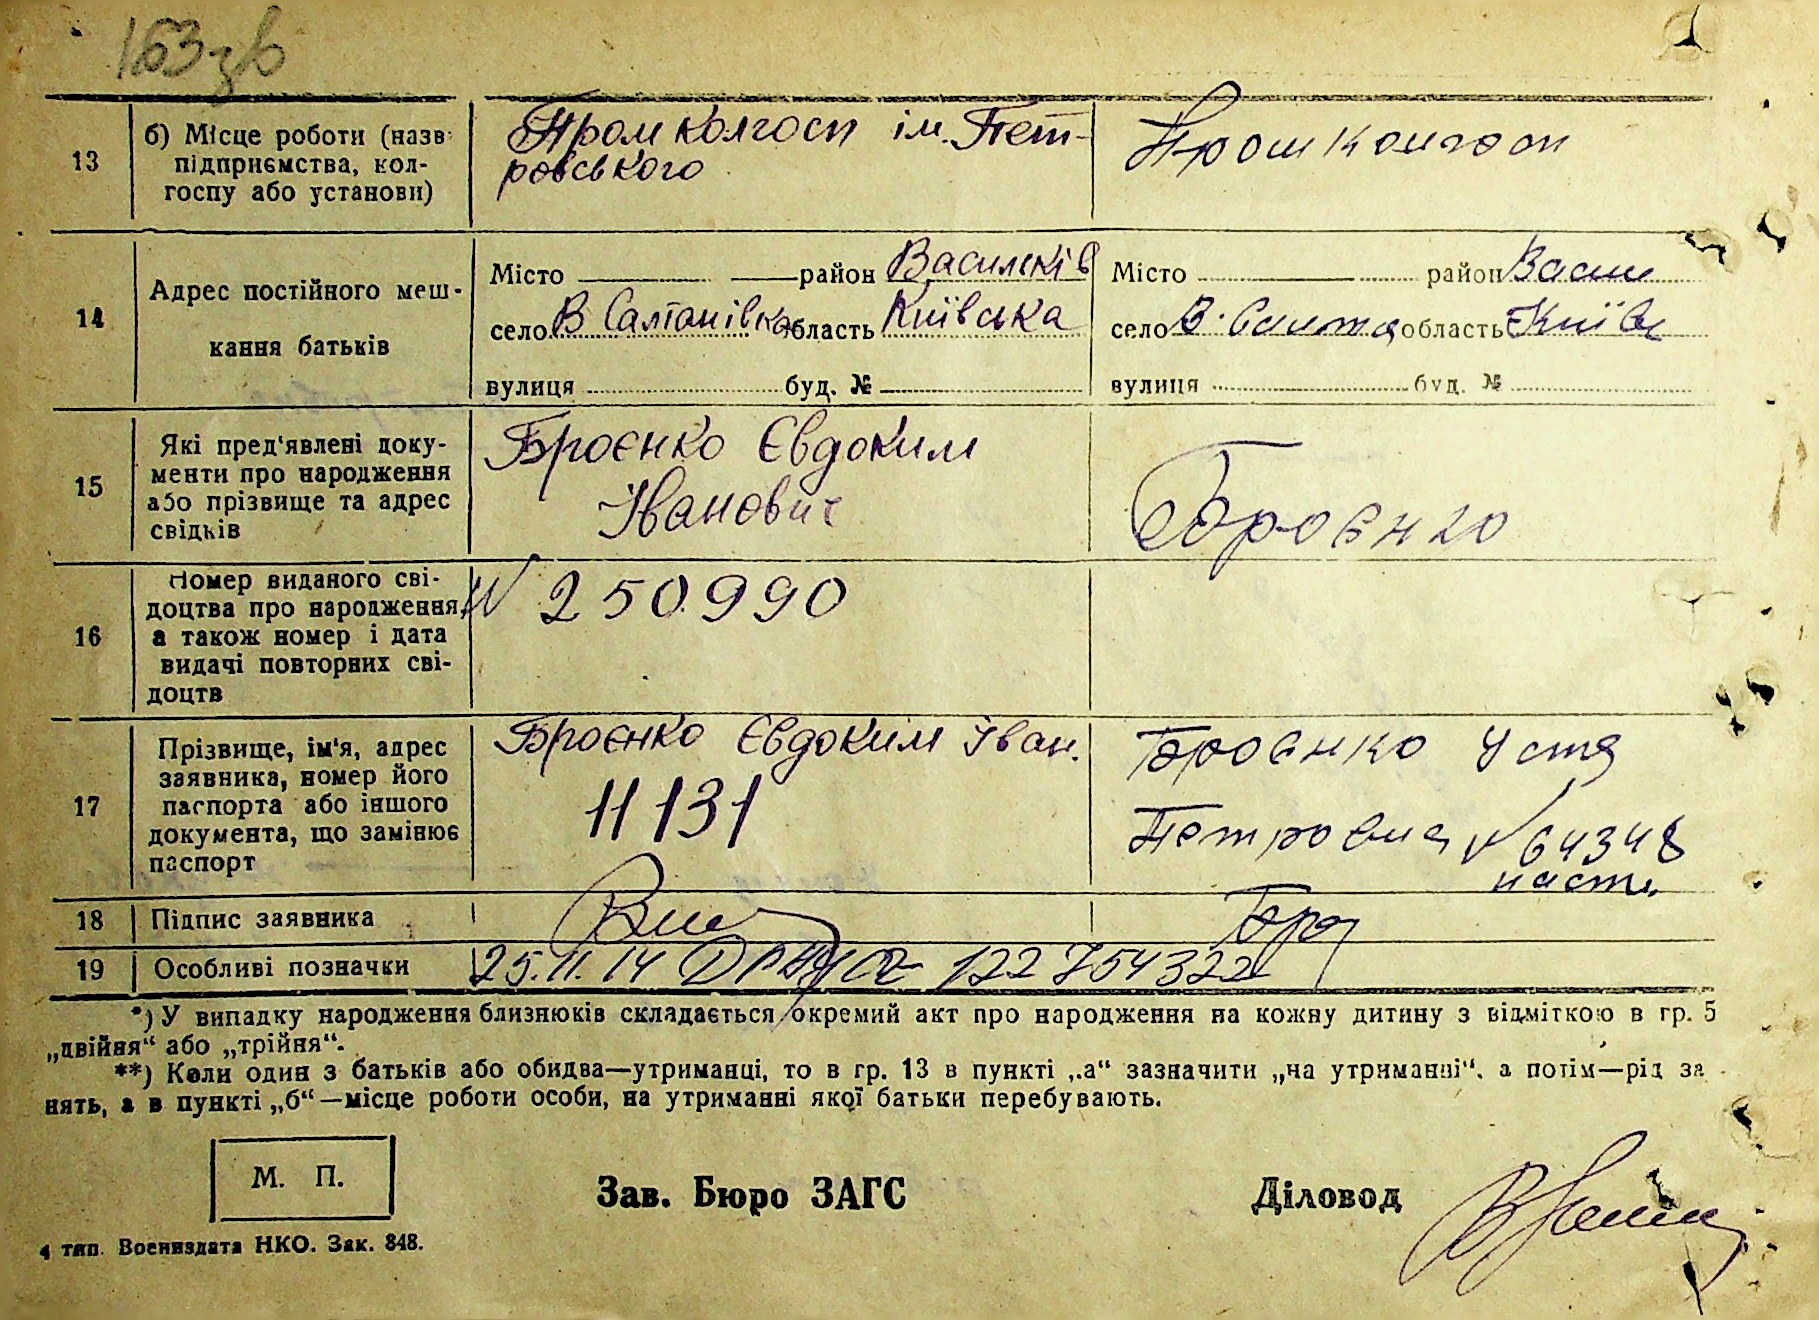 163 зв
13 б) Місце роботи (назв підприємства, колгоспу або установи)
Промколгосп ім. Петровського
Промколгосп
14 Адрес постійного мешкання батьків
Місто район Василеків
село В Салтанівка область Київська
вулиця буд. №
Місто район Васи
село В. Салта область Київ
вулиця буд. №
15 Які пред'явлені документи про народження або прізвище та адрес свідків
Броєнко Євдоким
Іванович
Броєнко
16 Номер виданого свідоцтва про народження, а також номер і дата видачі повторних свідоцтв
N 250990
17 Прізвище, ім'я, адрес заявника, номер його паспорта або іншого документа, що замінює паспорт
Броєнко Євдоким Іван.
11131
Броєнко Устя
Петровна N 64348
18 Підпис заявника
Бро
19 Особливі позначки
25.11.14 122 754322
*) У випадку народження близнюків складається окремий акт про народження на кожну дитину з відміткою в гр. 5
„двійня“ або „трійня“.
**) Коли один з батьків або обидва—утриманці, то в гр. 13 в пункті „а“ зазначити „на утриманні“, а потім—рід за
нять, а в пункті „б“—місце роботи особи, на утриманні якої батьки перебувають.
М. П.
Зав. Бюро ЗАГС
Діловод
4 тип. Воениздата НКО. Зак. 848.